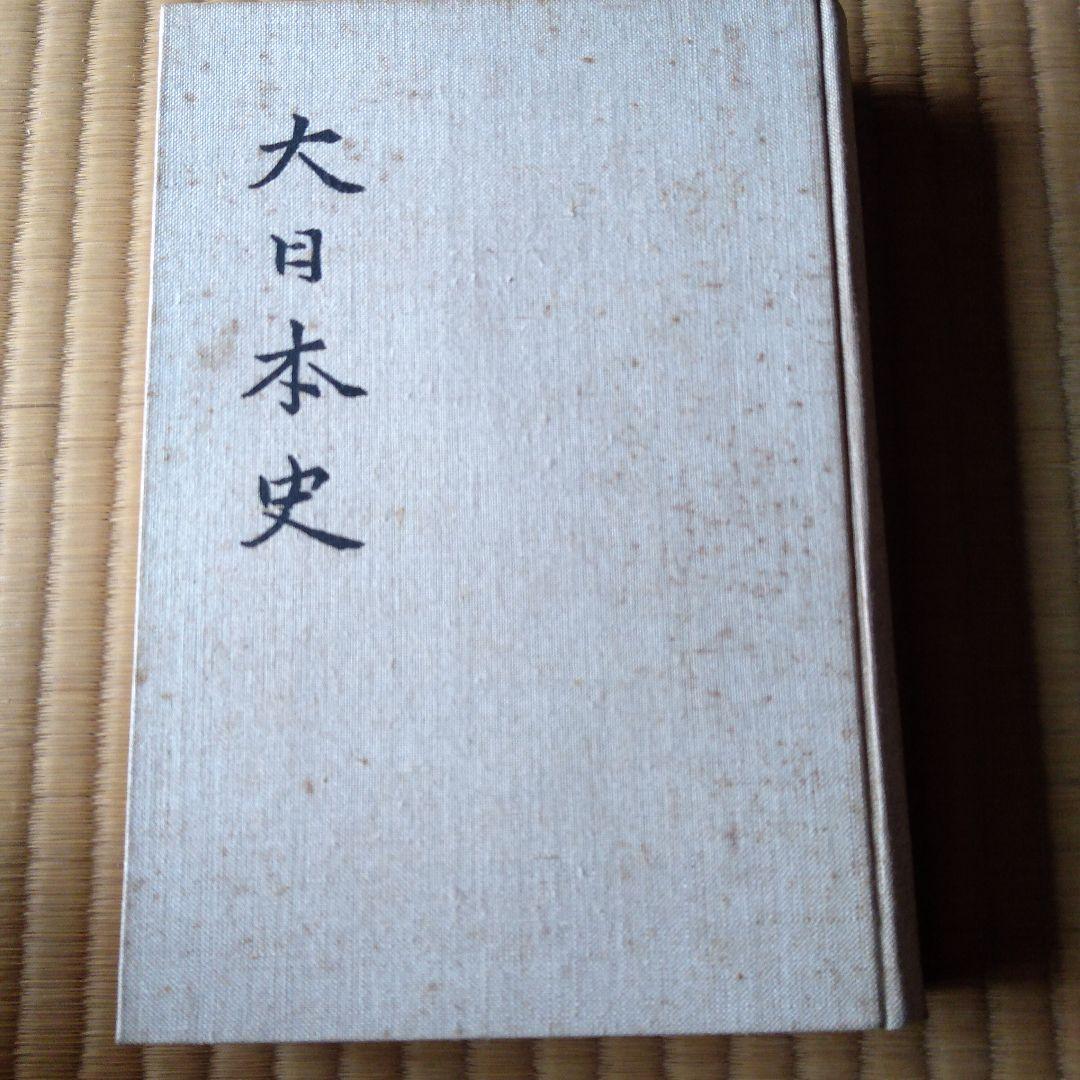 大日本史